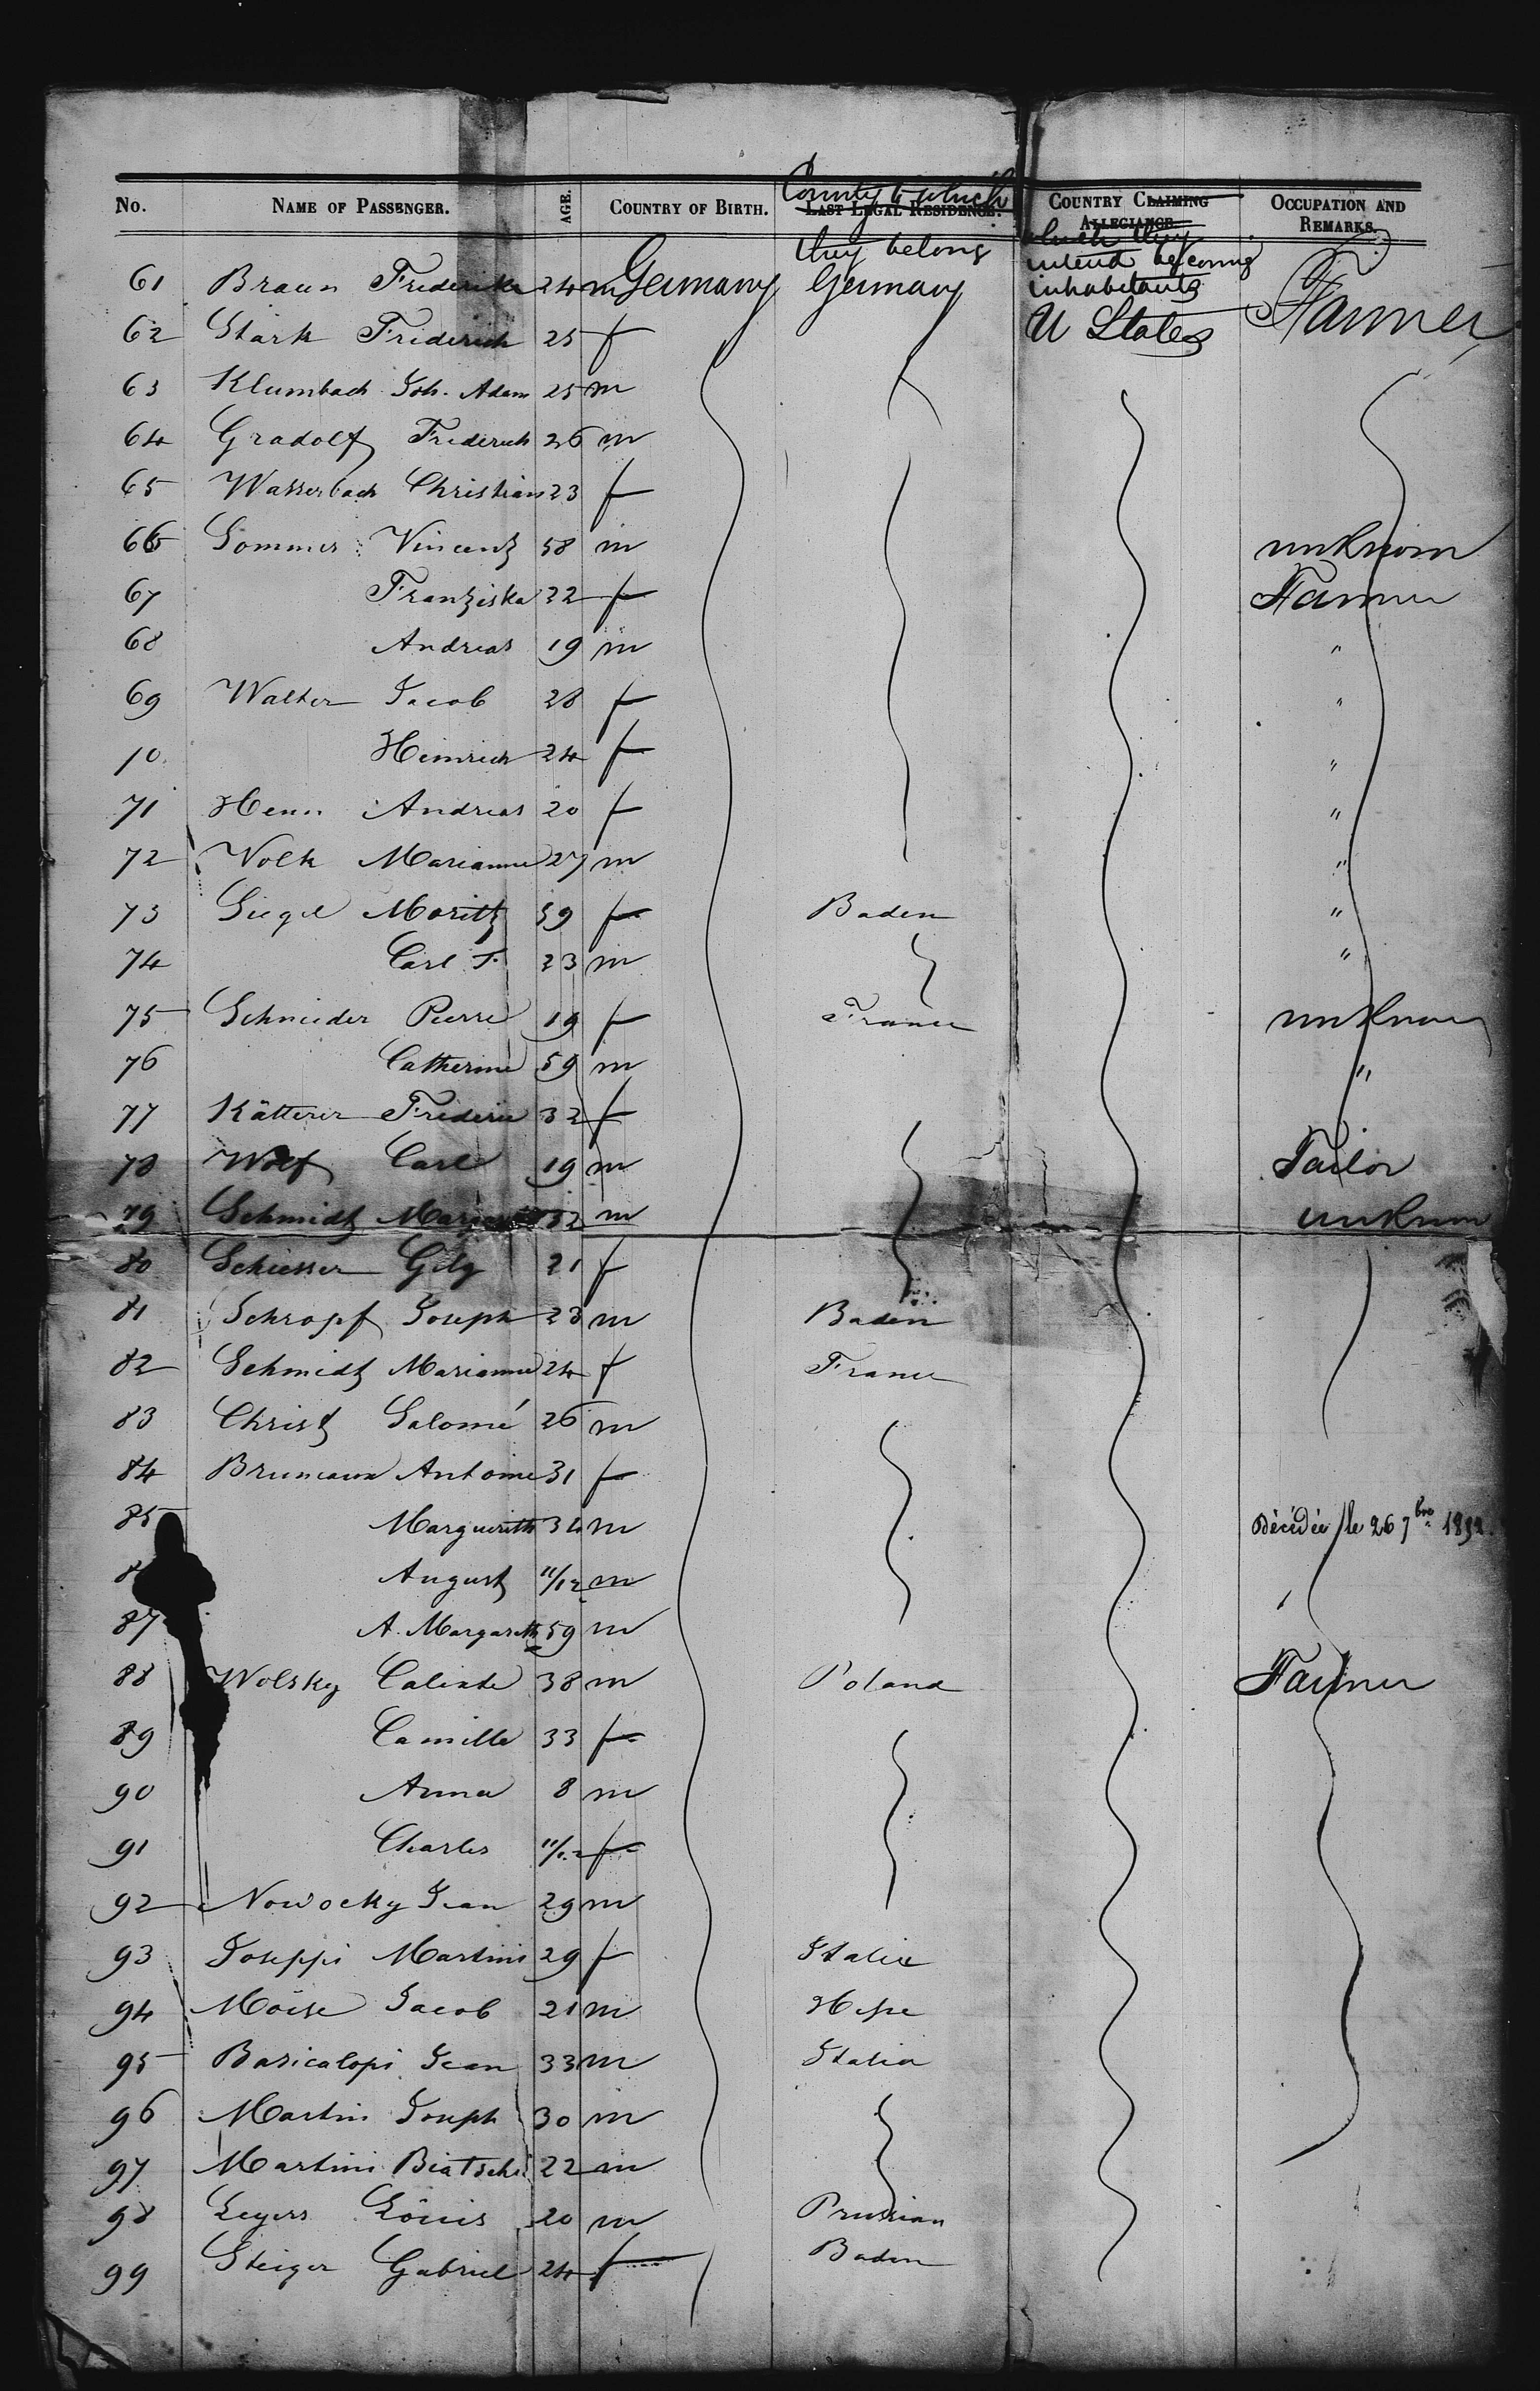 County to which
No. NAME OF PASSENGER. AGE. COUNTRY OF BIRTH. LAST LEGAL RESIDENCE. COUNTRY CLAIMING ALLEGIANCE. OCCUPATION AND REMARKS.
they belong which they intend becoming inhabitants
61 Braun Frederike 24 m Germany Germany U States Farmer
62 Stark Friderich 25 f
63 Klumbach Joh. Adam 25 m
64 Gradolf Friderich 26 m
65 Wasserbach Christian 23 f
66 Sommer Vincenz 58 m unknown
67 Franziska 22 f Farmer
68 Andreas 19 m "
69 Walter Jacob 28 f "
70 Heinrich 24 f "
71 Henn Andreas 20 f "
72 Volk Marianne 27 m "
73 Siegel Moritz 59 f Baden "
74 Carl F. 23 m "
75 Schneider Pierre 19 f France unknown
76 Catherine 59 m "
77 Kätterer Frederic 32 f
78 Wolf Carl 19 m Tailor
79 Schmidt 32 m unknown
80 Schiesser Gilg 21 f
81 Schropf Joseph 23 m Baden
82 Schmidt Marianne 24 f France
83 Christ Salomé 26 m
84 Bruneaux Antoine 31 f
85 Marguerith 34 m Décédée le 26 7bre 1832.
8 August 11/12 m
87 A. Margareth 59 m
88 Wolsky Calixte 38 m Poland Farmer
89 Camille 33 f
90 Anna 8 m
91 Charles 11/12 f
92 Nowocky Jean 29 m
93 Joseppi Martini 29 f Italie
94 Moïse Jacob 21 m Hesse
95 Basicalopi Jean 33 m Italia
96 Martin Joseph 30 m
97 Martini Biatschi 22 m
98 Leyers Louis 20 m Prussian
99 Steiger Gabriel 24 f Baden